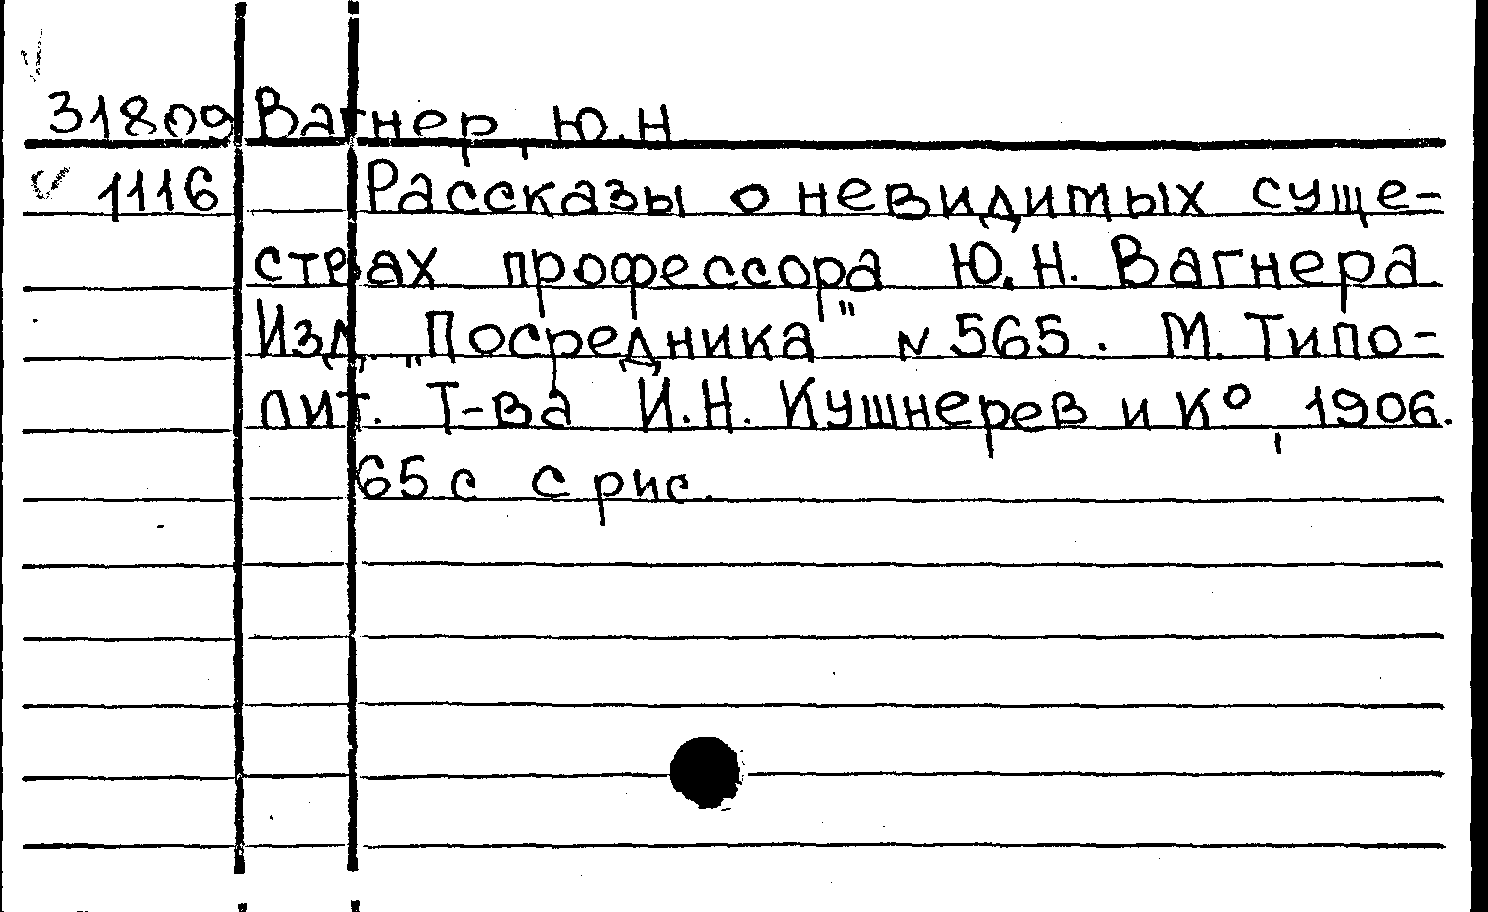 31809 Вагнер, Ю.Н
1116 Рассказы о невидимых суще-
ствах профессора Ю.Н. Вагнера
Изд. „Посредника" N 565. М. Типо-
лит. Т-ва И.Н. Кушнерев и К°, 1906.
65 с с рис.